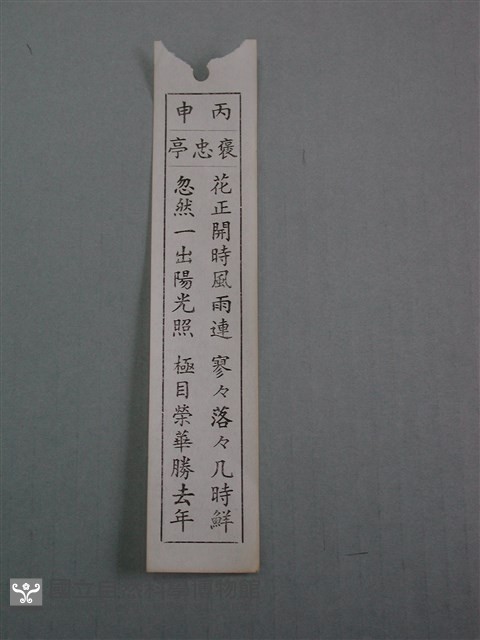 丙申
褒忠亭
花正開時風雨連 寥々落々几時鮮
忽然一出陽光照 極目榮華勝去年
國立自然科學博物館